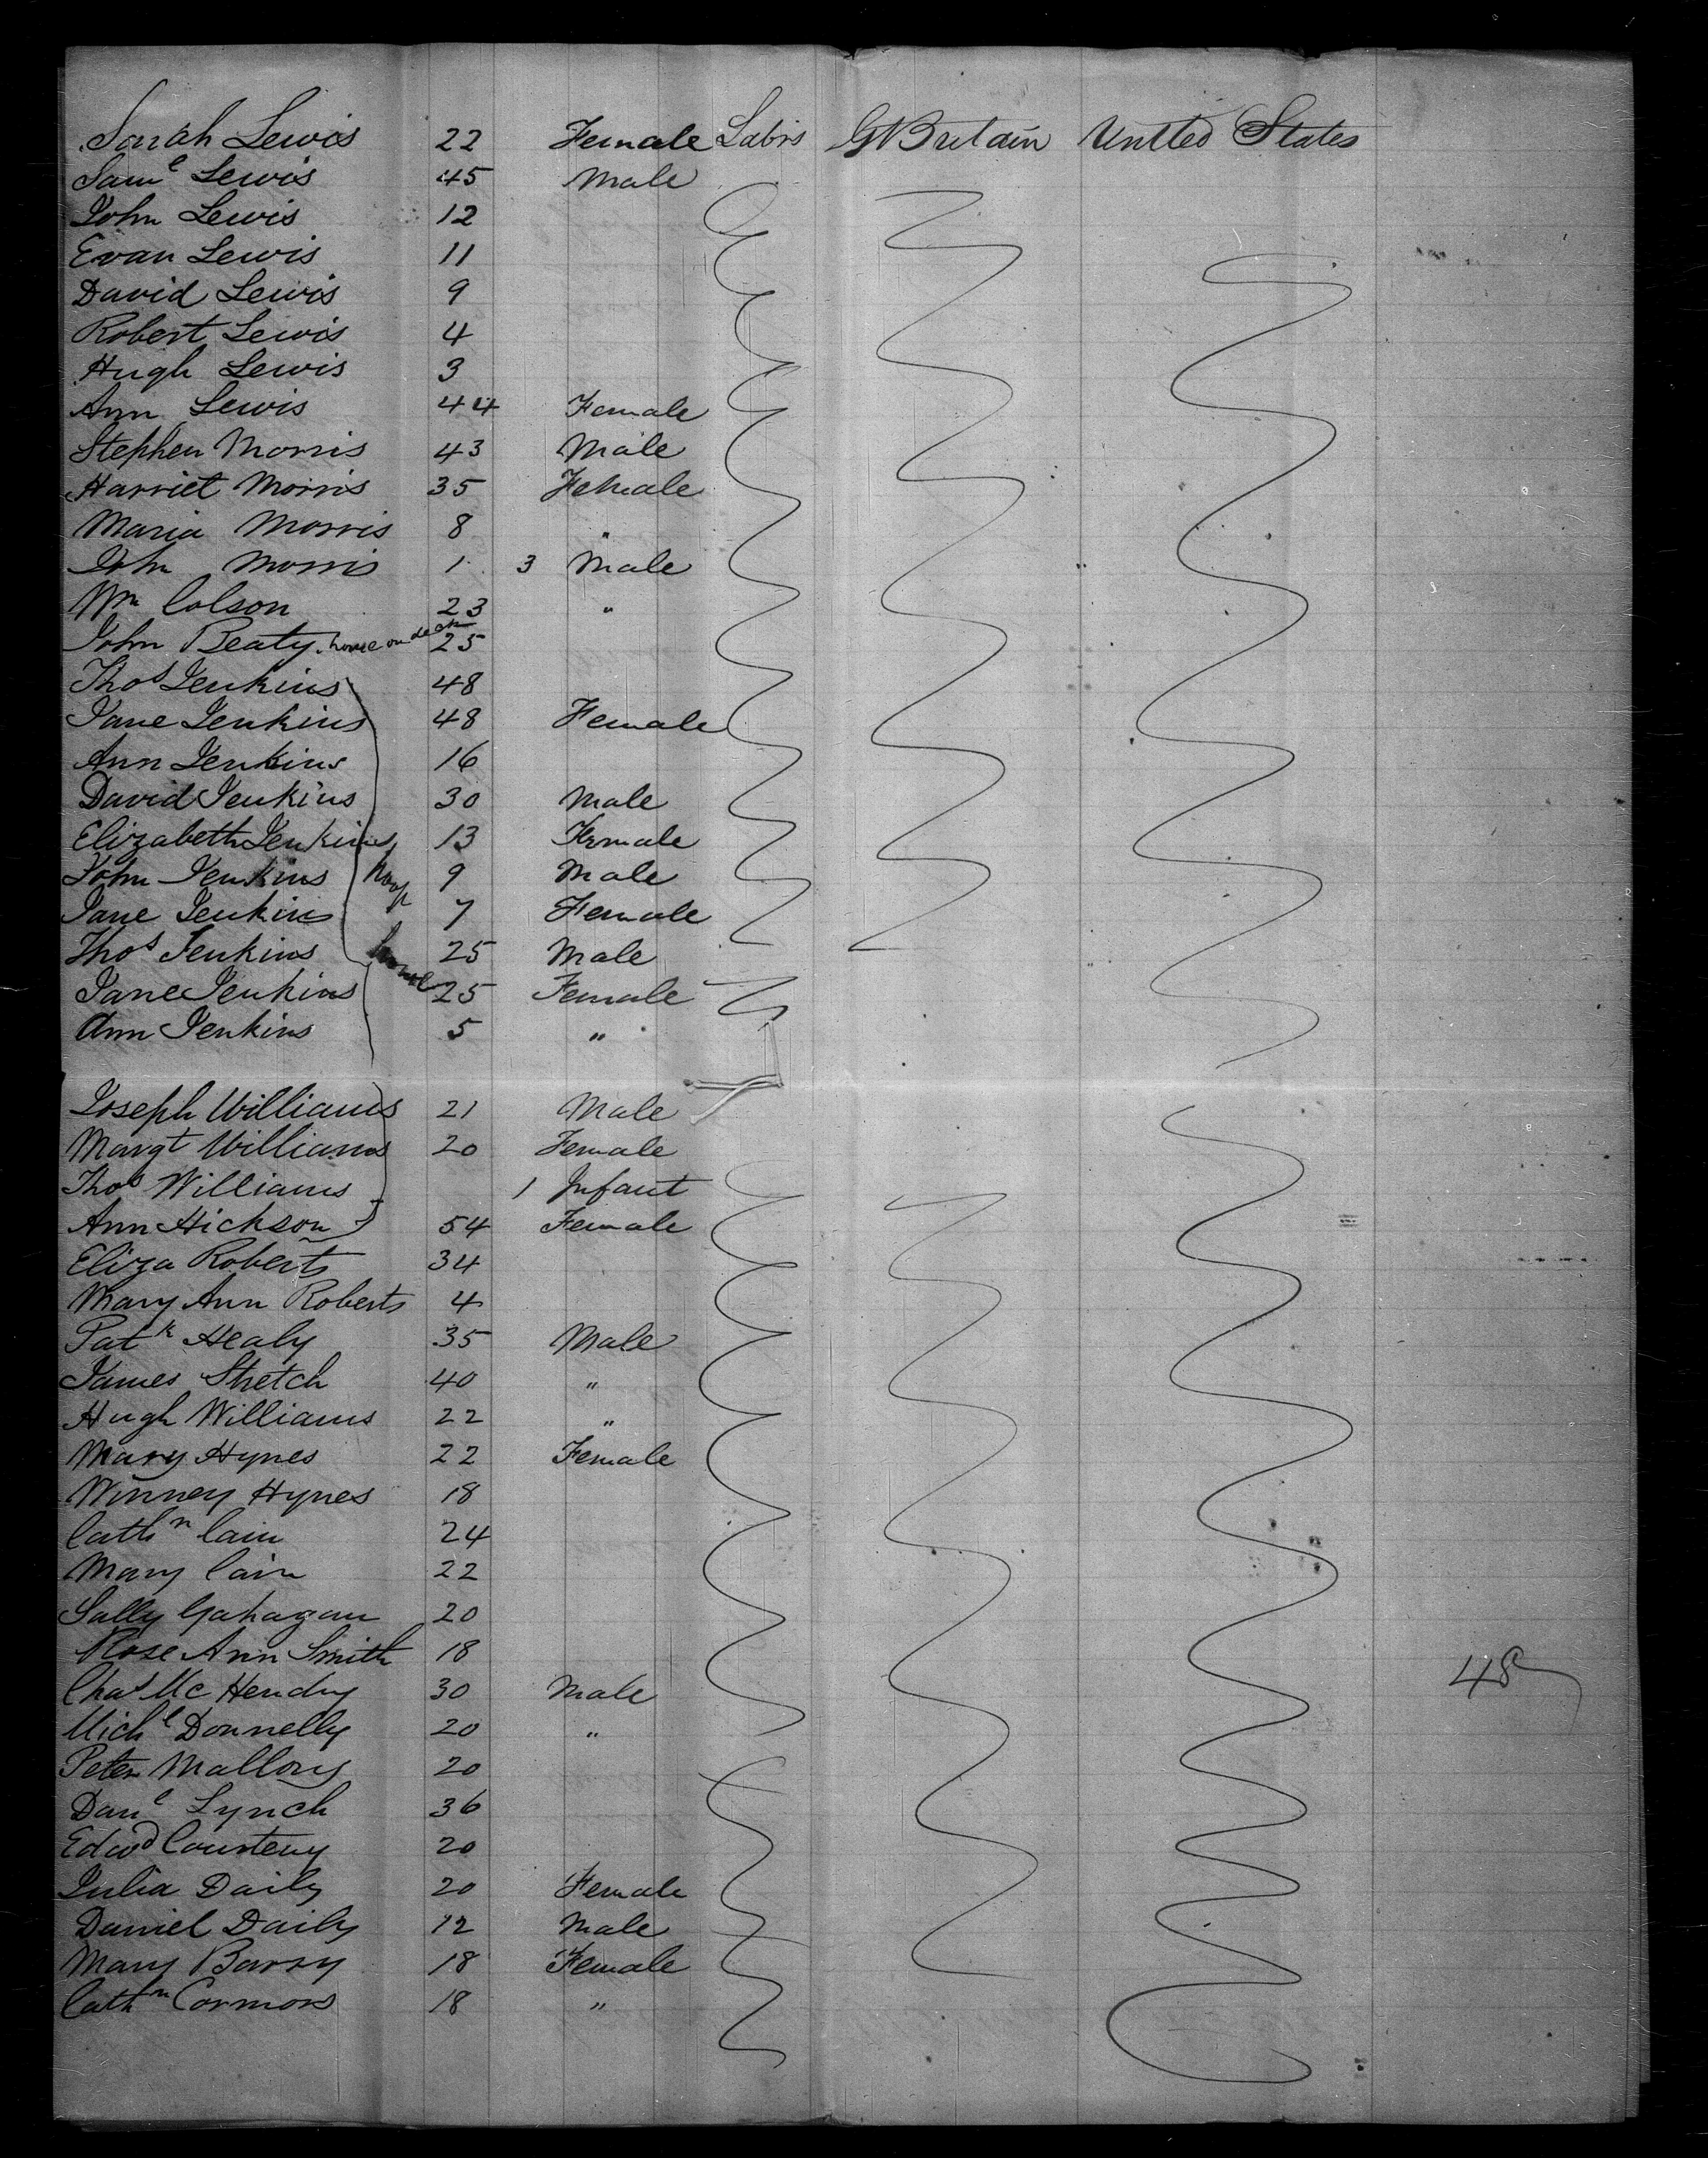 Sarah Lewis 22 Female Labrs G Britain United States
Saml Lewis 45 Male
John Lewis 12
Evan Lewis 11
David Lewis 9
Robert Lewis 4
Hugh Lewis 3
Ann Lewis 44 Female
Stephen Morris 43 Male
Harriet Morris 35 Female
Maria Morris 8 "
John Morris 1 3 Male
Wm Colson 23 "
John Beaty house on deck 25
Thos Jenkins 48
Jane Jenkins 48 Female
Ann Jenkins 16
David Jenkins 30 Male
Elizabeth Jenkins 13 Female
John Jenkins 9 Male
Jane Jenkins 7 Female
Thos Jenkins 25 Male
house
Jane Jenkins 25 Female
Ann Jenkins 5 "
Joseph Williams 21 Male
Margt Williams 20 Female
Thos Williams 1 Infant
Ann Hickson 54 Female
Eliza Roberts 34
Mary Ann Roberts 4
Patk Healy 35 Male
James Stretch 40 "
Hugh Williams 22 "
Mary Hynes 22 Female
Winney Hynes 18
Cathn Cain 24
Mary Cain 22
Sally Gahagan 20
Rose Ann Smith 18
Chas Mc Hendry 30 Male
48
Michl Donnelly 20 "
Peter Mallory 20
Danl Lynch 36
Edwd Courteny 20
Julia Daily 20 Female
Daniel Daily 12 Male
Mary Barry 18 Female
Cathn Cormons 18 "